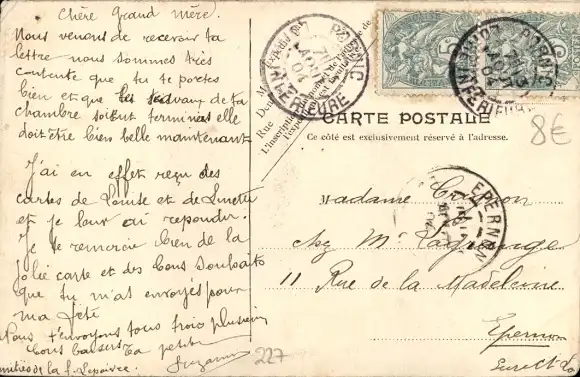 Chère Grand mère.
Nous venons de recevoir ta
lettre nous sommes très
contente que tu te portes
bien et que les travaux de ta
chambre soient terminés elle
doit être bien belle maintenant
J'ai en effet reçu des
cartes de Louise et de
et je leur ai repondu.
Je te remercie bien de la
jolie carte et des bons souhaits
que tu m'as envoyés pour
ma fête
Nous t'envoyons tous trois plusieurs
bons baisers ta petite
Suzanne
amitiés de la f.
CARTE POSTALE
Ce côté est exclusivement réservé à l'adresse.
PORNIC
LOIRE INFERIEURE
04
PORNIC
LOIRE INFERIEURE
04
8€
EPERNON
Madame
chez Mr
11 Rue de la Madeleine
Epernon
Eure et Lo
227